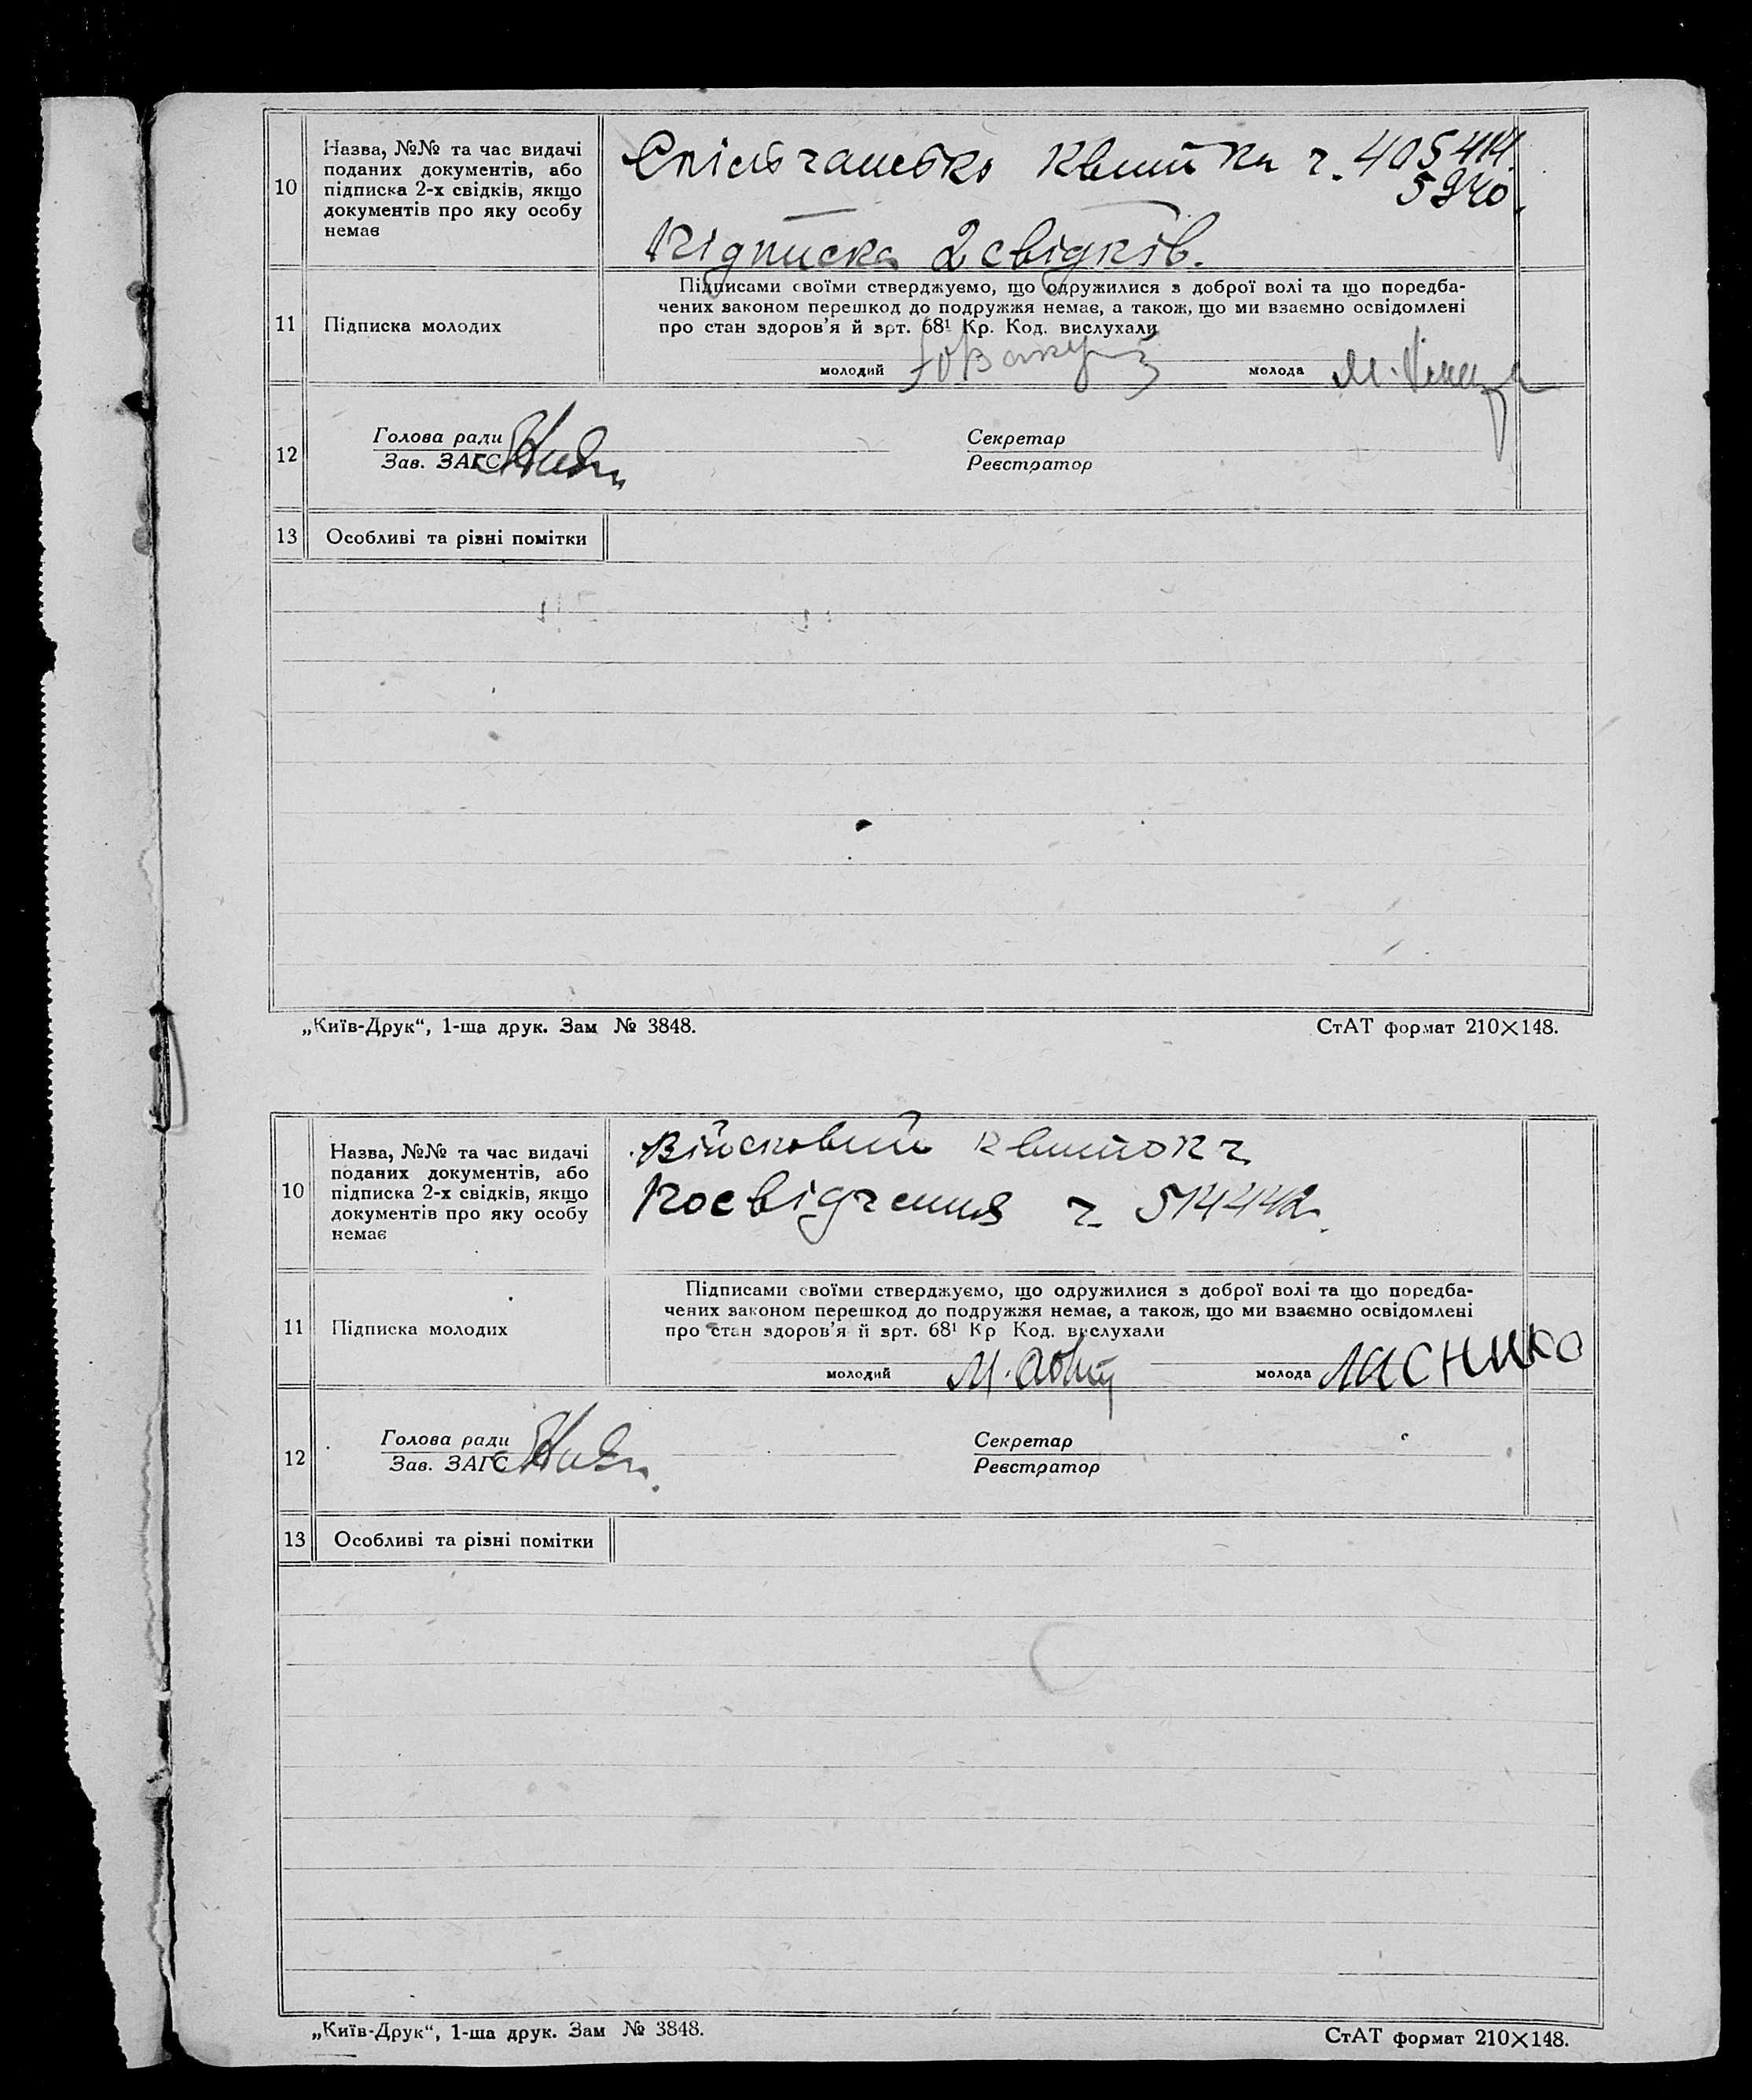 10
Назва, №№ та час видачі
поданих документів, або
підписка 2-х свідків, якщо
документів про яку особу
немає
квитка ч. 405414
5940.
Підписка 2 свідків.
11
Підписка молодих
Підписами своїми стверджуємо, що одружилися з доброї волі та що поредба-
чених законом перешкод до подружжя немає, а також, що ми взаємно освідомлені
про стан здоров'я й арт. 68¹ Кр. Код. вислухали
молодий
молода
12
Голова ради
Зав. ЗАГС
Секретар
Реєстратор
13
Особливі та різні помітки
„Київ-Друк“, 1-ша друк. Зам № 3848.
СтАТ формат 210×148.
10
Назва, №№ та час видачі
поданих документів, або
підписка 2-х свідків, якщо
документів про яку особу
немає
Війсковий квиток ч
Посвідчення ч. 514442.
11
Підписка молодих
Підписами своїми стверджуємо, що одружилися з доброї волі та що поредба-
чених законом перешкод до подружжя немає, а також, що ми взаємно освідомлені
про стан здоров'я й арт. 68¹ Кр Код. вислухали
молодий
молода
12
Голова ради
Зав. ЗАГС
Секретар
Реєстратор
13
Особливі та різні помітки
„Київ-Друк“, 1-ша друк. Зам № 3848.
СтАТ формат 210×148.